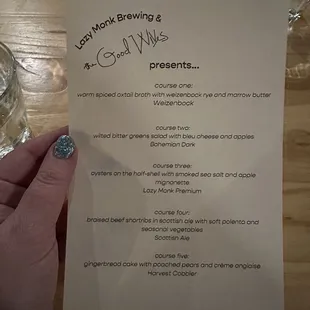 Lazy Monk Brewing &
the Good Wives
presents...
course one:
warm spiced oxtail broth with weizenbock rye and marrow butter
Weizenbock
course two:
wilted bitter greens salad with bleu cheese and apples
Bohemian Dark
course three:
oysters on the half-shell with smoked sea salt and apple
mignonette
Lazy Monk Premium
course four:
braised beef shortribs in scottish ale with soft polenta and
seasonal vegetables
Scottish Ale
course five:
gingerbread cake with poached pears and crème anglaise
Harvest Cobbler